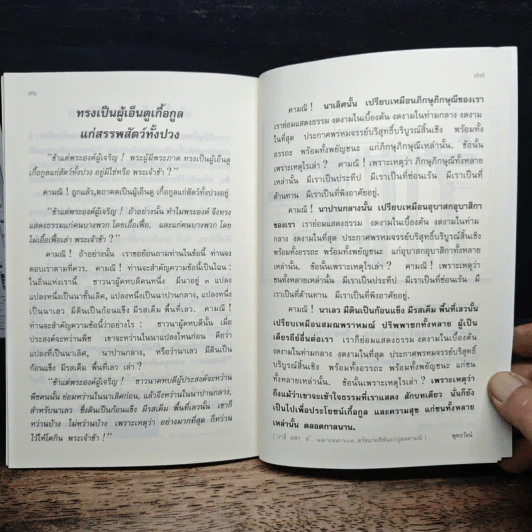 ๗๖
ทรงเป็นผู้เอ็นดูเกื้อกูล
แก่สรรพสัตว์ทั้งปวง
"ข้าแต่พระองค์ผู้เจริญ ! พระผู้มีพระภาค ทรงเป็นผู้เอ็นดู
เกื้อกูลแก่สัตว์ทั้งปวงอยู่ มิใช่หรือ พระเจ้าข้า ?"
คามณิ ! ถูกแล้ว, ตถาคตเป็นผู้เอ็นดู เกื้อกูลแก่สัตว์ทั้งปวงอยู่
"ข้าแต่พระองค์ผู้เจริญ ! ถ้าอย่างนั้น ทำไมพระองค์ จึงทรง
แสดงธรรมแก่คนบางพวก โดยเอื้อเฟื้อ, และแก่คนบางพวก โดย
ไม่เอื้อเฟื้อเล่า พระเจ้าข้า ?"
คามณิ ! ถ้าอย่างนั้น เราขอย้อนถามท่านในข้อนี้ ท่านจง
ตอบเราตามที่ควร. คามณิ ! ท่านจะสำคัญความข้อนี้เป็นไฉน :
ในถิ่นแห่งเรานี้ ชาวนาผู้คหบดีคนหนึ่ง มีนาอยู่ ๓ แปลง
แปลงหนึ่งเป็นนาชั้นเลิศ, แปลงหนึ่งเป็นนาปานกลาง, แปลงหนึ่ง
เป็นนาเลว มีดินเป็นก้อนแข็ง มีรสเค็ม พื้นที่เลว. คามณิ !
ท่านจะสำคัญความข้อนี้ว่าอย่างไร : ชาวนาผู้คหบดีนั้น เมื่อ
ประสงค์จะหว่านพืช เขาจะหว่านในนาแปลงไหนก่อน คือว่า
แปลงที่เป็นนาเลิศ, นาปานกลาง, หรือว่านาเลว มีดินเป็นก้อน
แข็ง มีรสเค็ม พื้นที่เลว เล่า ?
"ข้าแต่พระองค์ผู้เจริญ ! ชาวนาคหบดีผู้ประสงค์จะหว่าน
พืชคนนั้น ย่อมหว่านในนาเลิศก่อน, แล้วจึงหว่านในนาปานกลาง,
สำหรับนาเลว ซึ่งดินเป็นก้อนแข็ง มีรสเค็ม พื้นที่เลวนั้น เขาก็
หว่านบ้าง ไม่หว่านบ้าง เพราะเหตุว่า อย่างมากที่สุด ก็หว่าน
ไว้ให้โคกิน พระเจ้าข้า !"
๗๗
คามณิ ! นาเลิศนั้น เปรียบเหมือนภิกษุภิกษุณีของเรา
เราย่อมแสดงธรรม งดงามในเบื้องต้น งดงามในท่ามกลาง งดงาม
ในที่สุด ประกาศพรหมจรรย์บริสุทธิ์บริบูรณ์สิ้นเชิง พร้อมทั้ง
อรรถะ พร้อมทั้งพยัญชนะ แก่ภิกษุภิกษุณีทั้งหลายเหล่านั้น. ข้อ
นั้นเพราะเหตุไรเล่า ? คามณิ ! เพราะเหตุว่า ภิกษุภิกษุณีทั้งหลาย
เหล่านั้น มีเราเป็นประทีป มีเราเป็นที่ซ่อนเร้น มีเราเป็นที่
ต้านทาน มีเราเป็นที่พึ่งอาศัยอยู่.
คามณิ ! นาปานกลางนั้น เปรียบเหมือนอุบาสกอุบาสิกา
ของเรา เราย่อมแสดงธรรม งดงามในเบื้องต้น งดงามในท่าม
กลาง งดงามในที่สุด ประกาศพรหมจรรย์บริสุทธิ์บริบูรณ์สิ้นเชิง
พร้อมทั้งอรรถะ พร้อมทั้งพยัญชนะ แก่อุบาสกอุบาสิกาทั้งหลาย
เหล่านั้น. ข้อนั้นเพราะเหตุไรเล่า ? คามณิ ! เพราะเหตุว่า
ชนทั้งหลายเหล่านั้น มีเราเป็นประทีป มีเราเป็นที่ซ่อนเร้น มี
เราเป็นที่ต้านทาน มีเราเป็นที่พึ่งอาศัยอยู่.
คามณิ ! นาเลว มีดินเป็นก้อนแข็ง มีรสเค็ม พื้นที่เลวนั้น
เปรียบเหมือนสมณพราหมณ์ ปริพพาชกทั้งหลาย ผู้เป็น
เดียรถีย์อื่นต่อเรา เราก็ย่อมแสดงธรรม งดงามในเบื้องต้น
งดงามในท่ามกลาง งดงามในที่สุด ประกาศพรหมจรรย์
บริสุทธิ์บริบูรณ์สิ้นเชิง พร้อมทั้งอรรถะ พร้อมทั้งพยัญชนะ แก่ชน
ทั้งหลายเหล่านั้น. ข้อนั้นเพราะเหตุไรเล่า ? เพราะเหตุว่า
ถึงแม้ว่าเขาจะเข้าใจธรรมที่เราแสดง สักบทเดียว นั่นก็ยัง
เป็นไปเพื่อประโยชน์เกื้อกูล และความสุข แก่ชนทั้งหลาย
เหล่านั้น ตลอดกาลนาน.
พุทธวัจน์